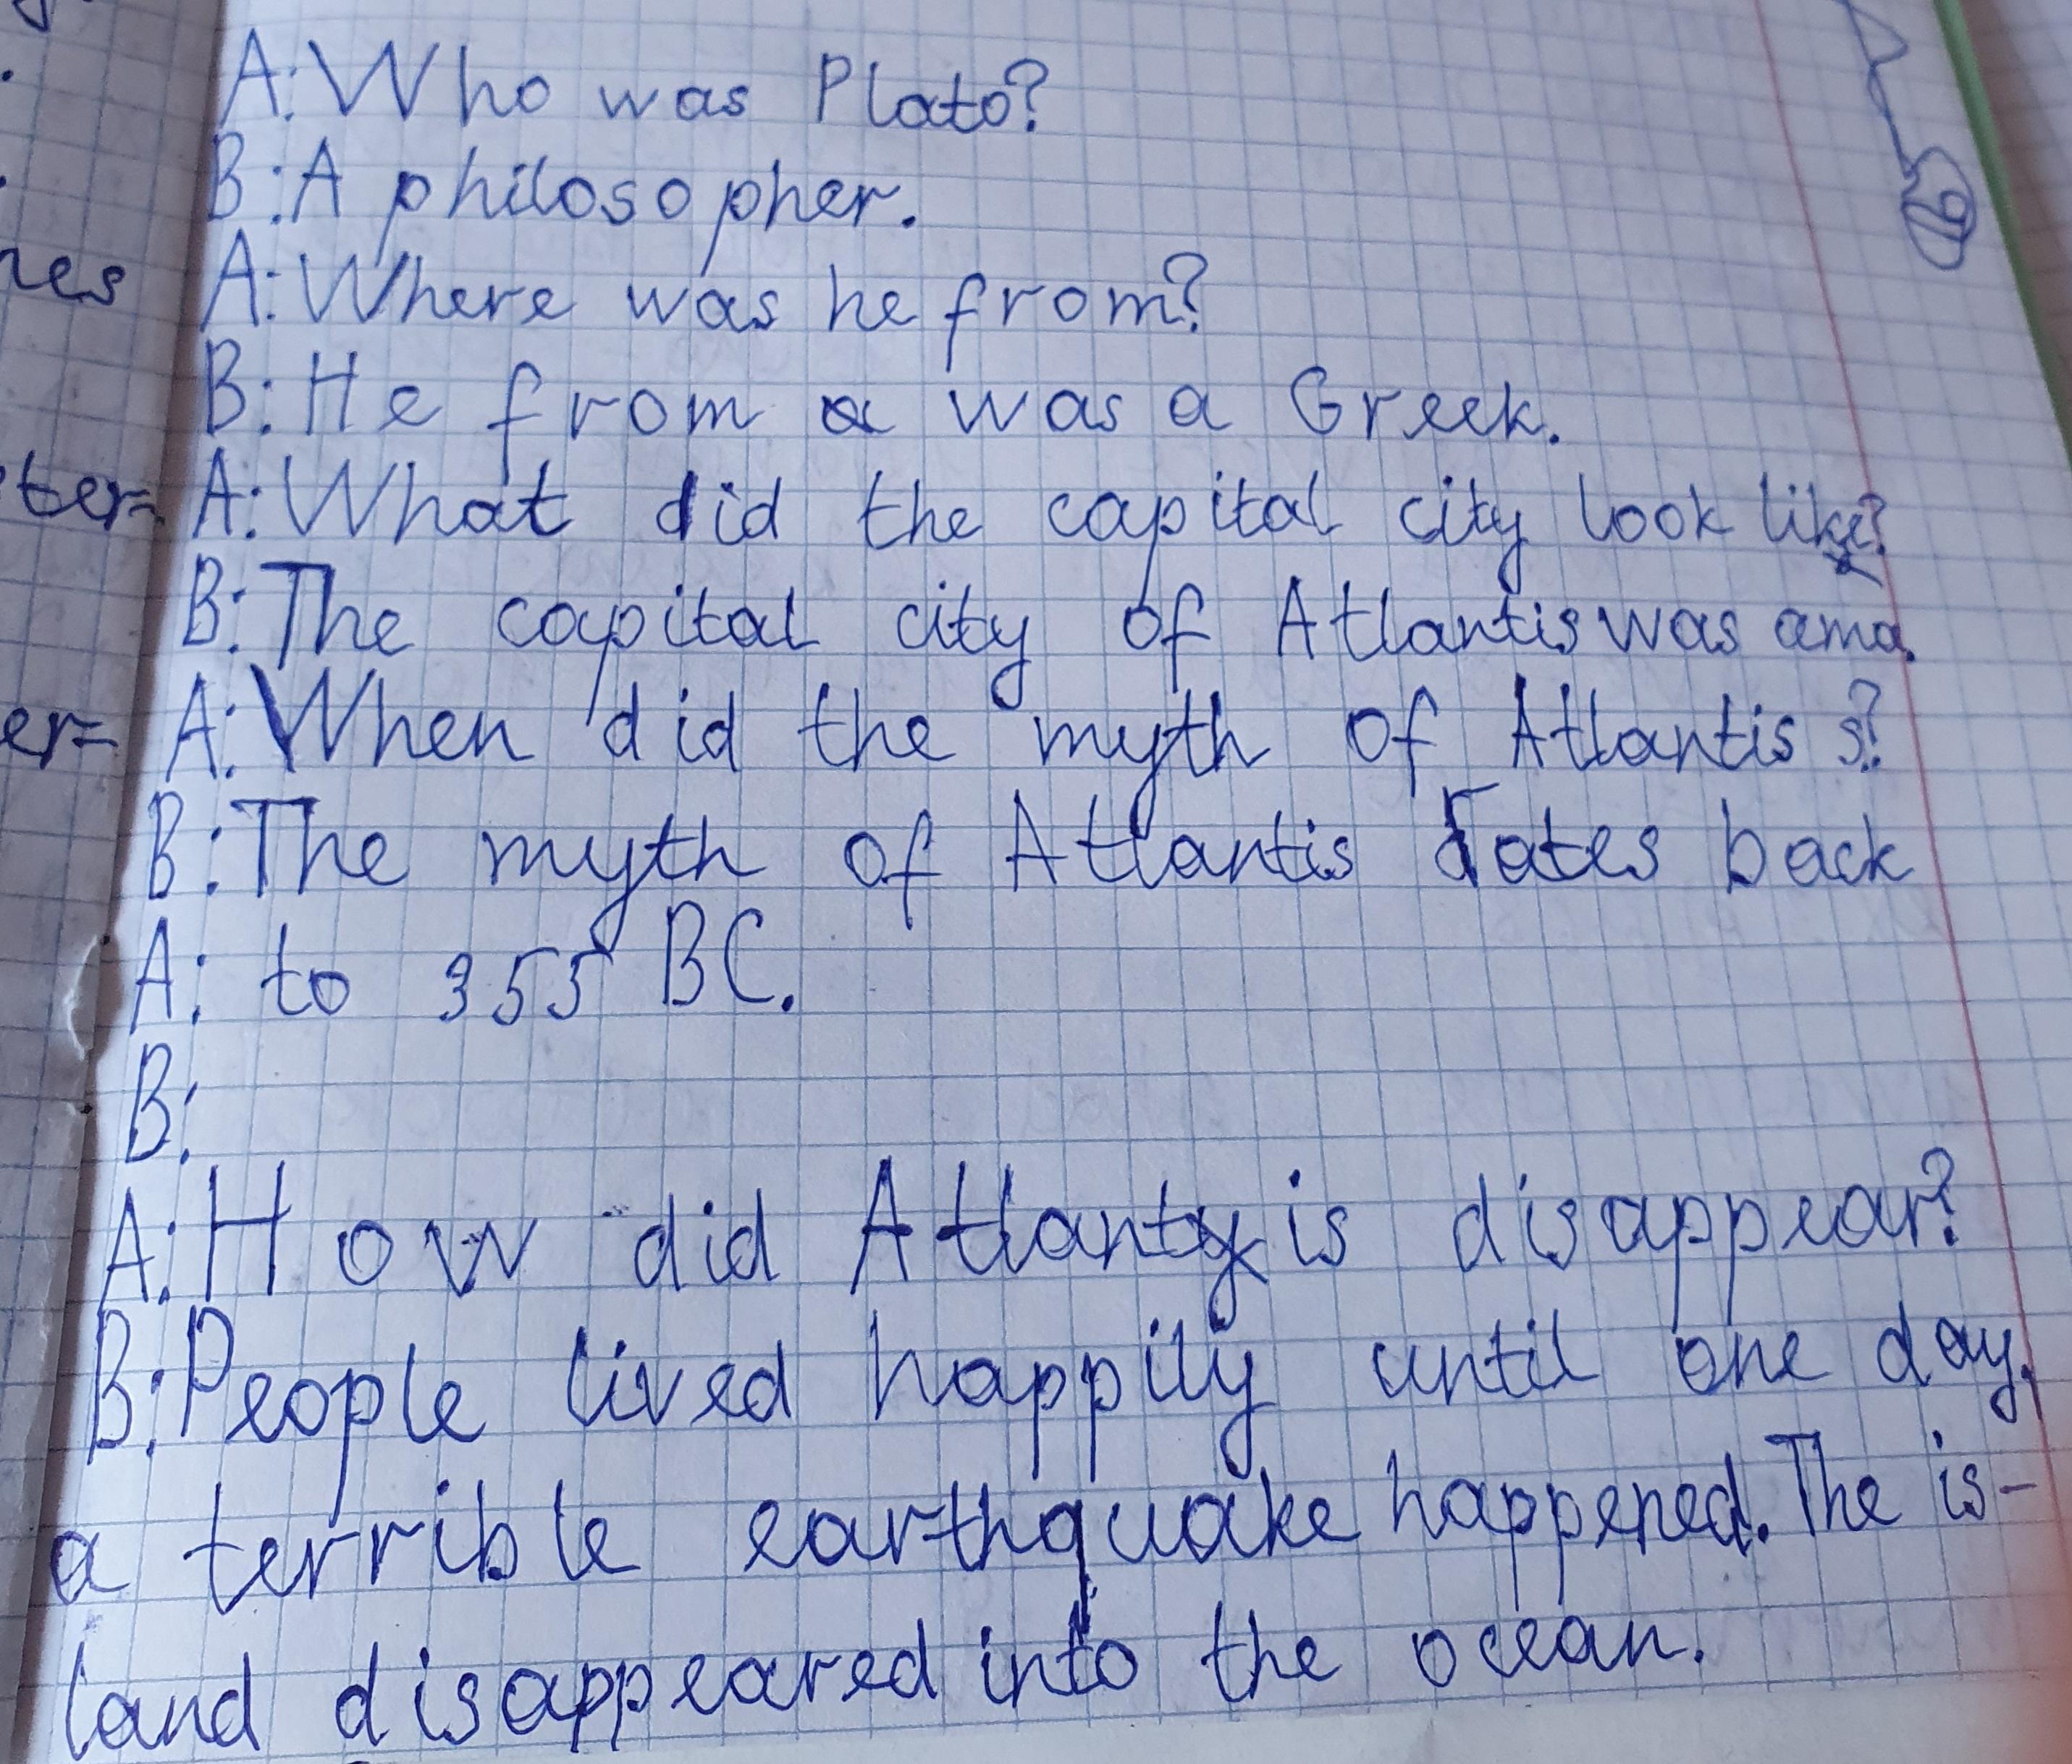 A: Who was Plato?
B: A philosopher.
nes
A: Where was he from?
B: He from a was a Greek.
ter=
A: What did the capital city look like?
B: The capital city of Atlantis was ama.
er=
A: When did the myth of Atlantis s?
B: The myth of Atlantis dates back
A: to 355 BC.
B:
A: How did Atlantis disappear?
B: People lived happily until one day,
a terrible earthquake happened. The is-
land disappeared into the ocean.